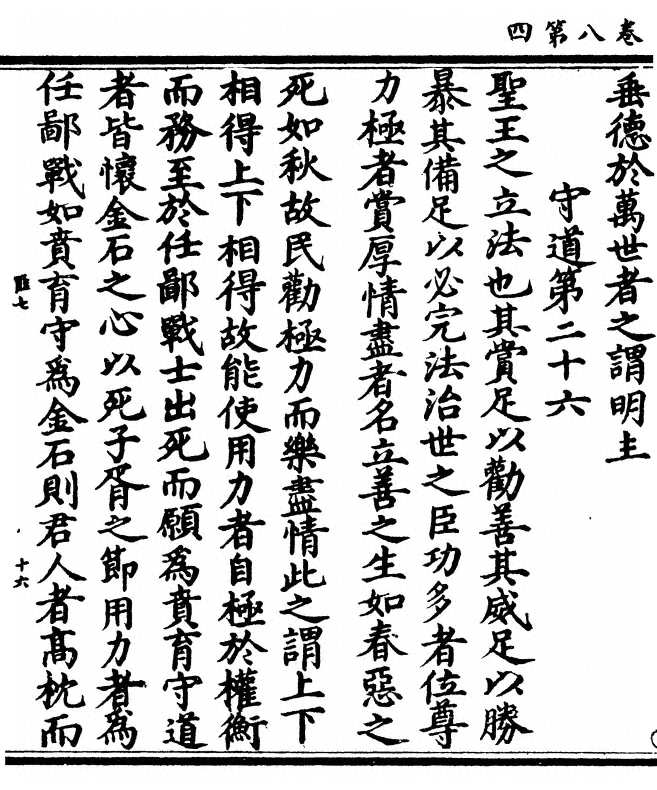 卷八第四
垂德於萬世者之謂明主
守道第二十六
聖王之立法也其賞足以勸善其威足以勝
暴其備足以必完法治世之臣功多者位尊
力極者賞厚情盡者名立善之生如春惡之
死如秋故民勸極力而樂盡情此之謂上下
相得上下相得故能使用力者自極於權衡
而務至於任鄙戰士出死而願為賁育守道
者皆懷金石之心以死子胥之節用力者為
任鄙戰如賁育守為金石則君人者高枕而
匪七
十六